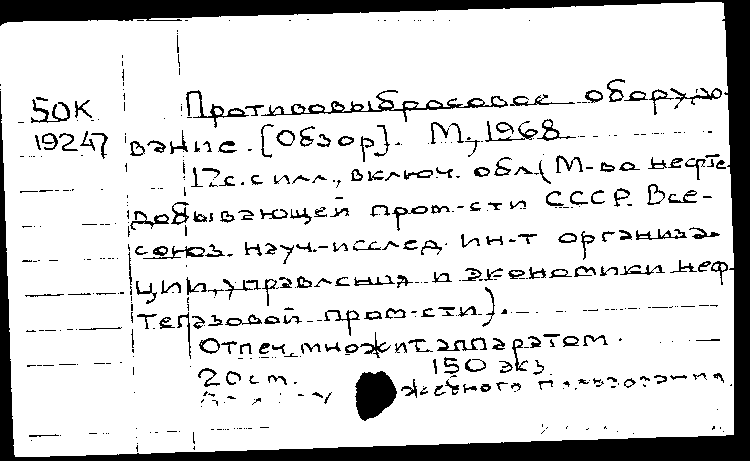 50К Противовыбросовое оборудо-
19247 вание. [Обзор]. М., 1968.
12с. с илл., включ. обл. (М-во нефте-
добывающей пром-сти СССР. Все-
союз. науч.-исслед. ин-т организа-
ции, управления и экономики неф-
тегазовой пром-сти).
Отпеч. множит. аппаратом.
20 см. 150 экз.
жебного пользования